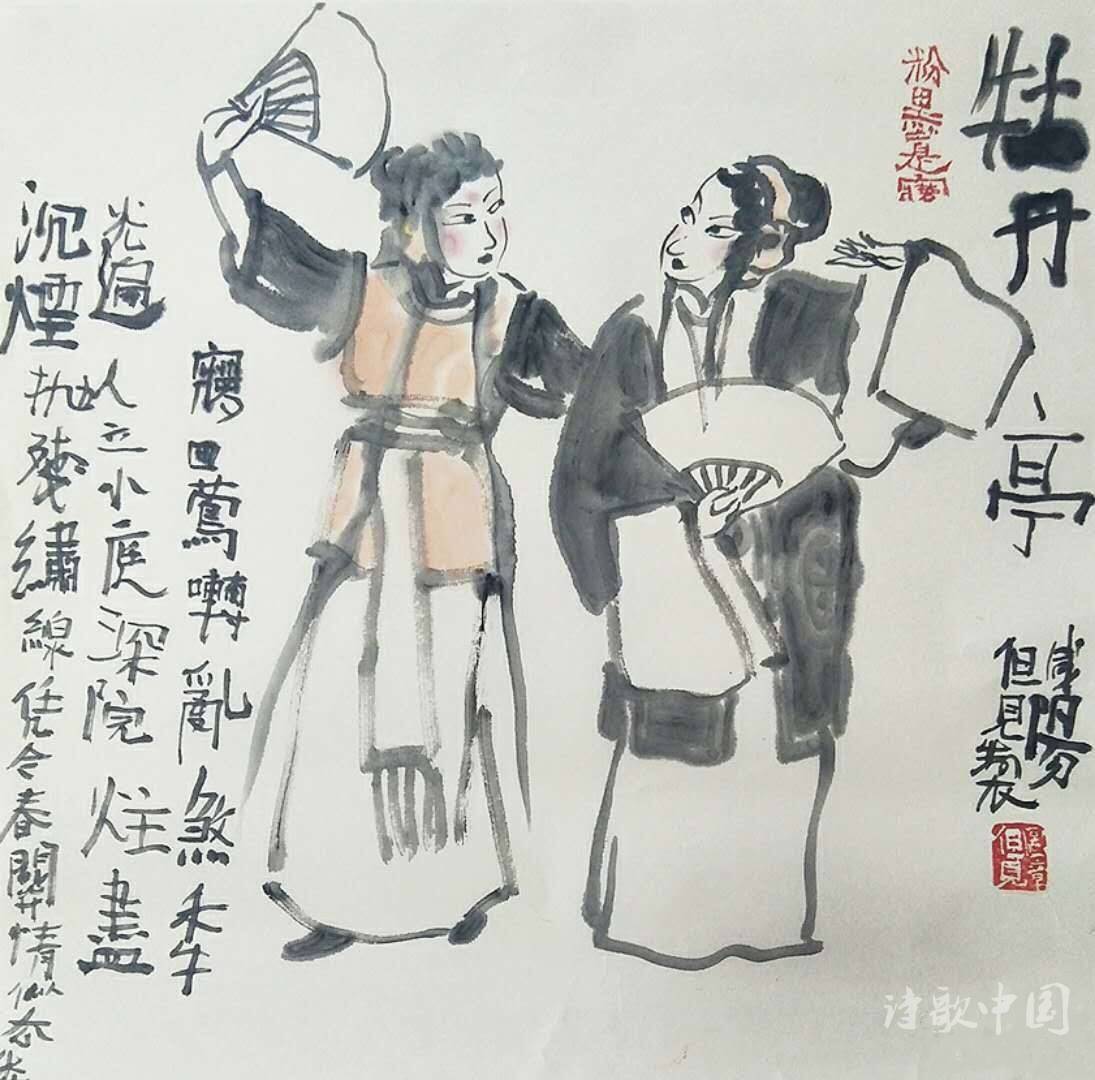 牡丹亭
粉墨是
但見製
但見
夢回鶯囀亂煞年
光遍人立小庭深院炷盡
沉煙拋殘繡線恁今春關情似去年
诗歌中国